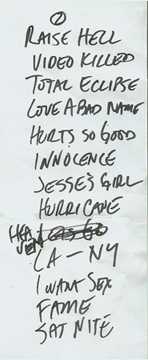 2
RAISE HELL
VIDEO KILLED
TOTAL ECLIPSE
LOVE A BAD NAME
HURTS SO GOOD
INNOCENCE
JESSE'S GIRL
HURRICANE
HEAVEN
LA - NY
I WANT SEX
FAME
SAT NITE